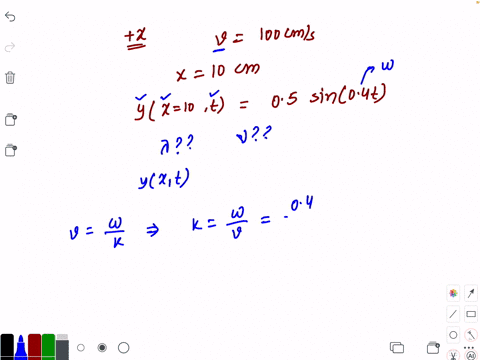 +x v = 100 cm/s
x = 10 cm
ω
y(x=10, t) = 0.5 sin(0.4t)
λ?? ν??
y(x,t)
v = ω/k ⇒ k = ω/v = 0.4